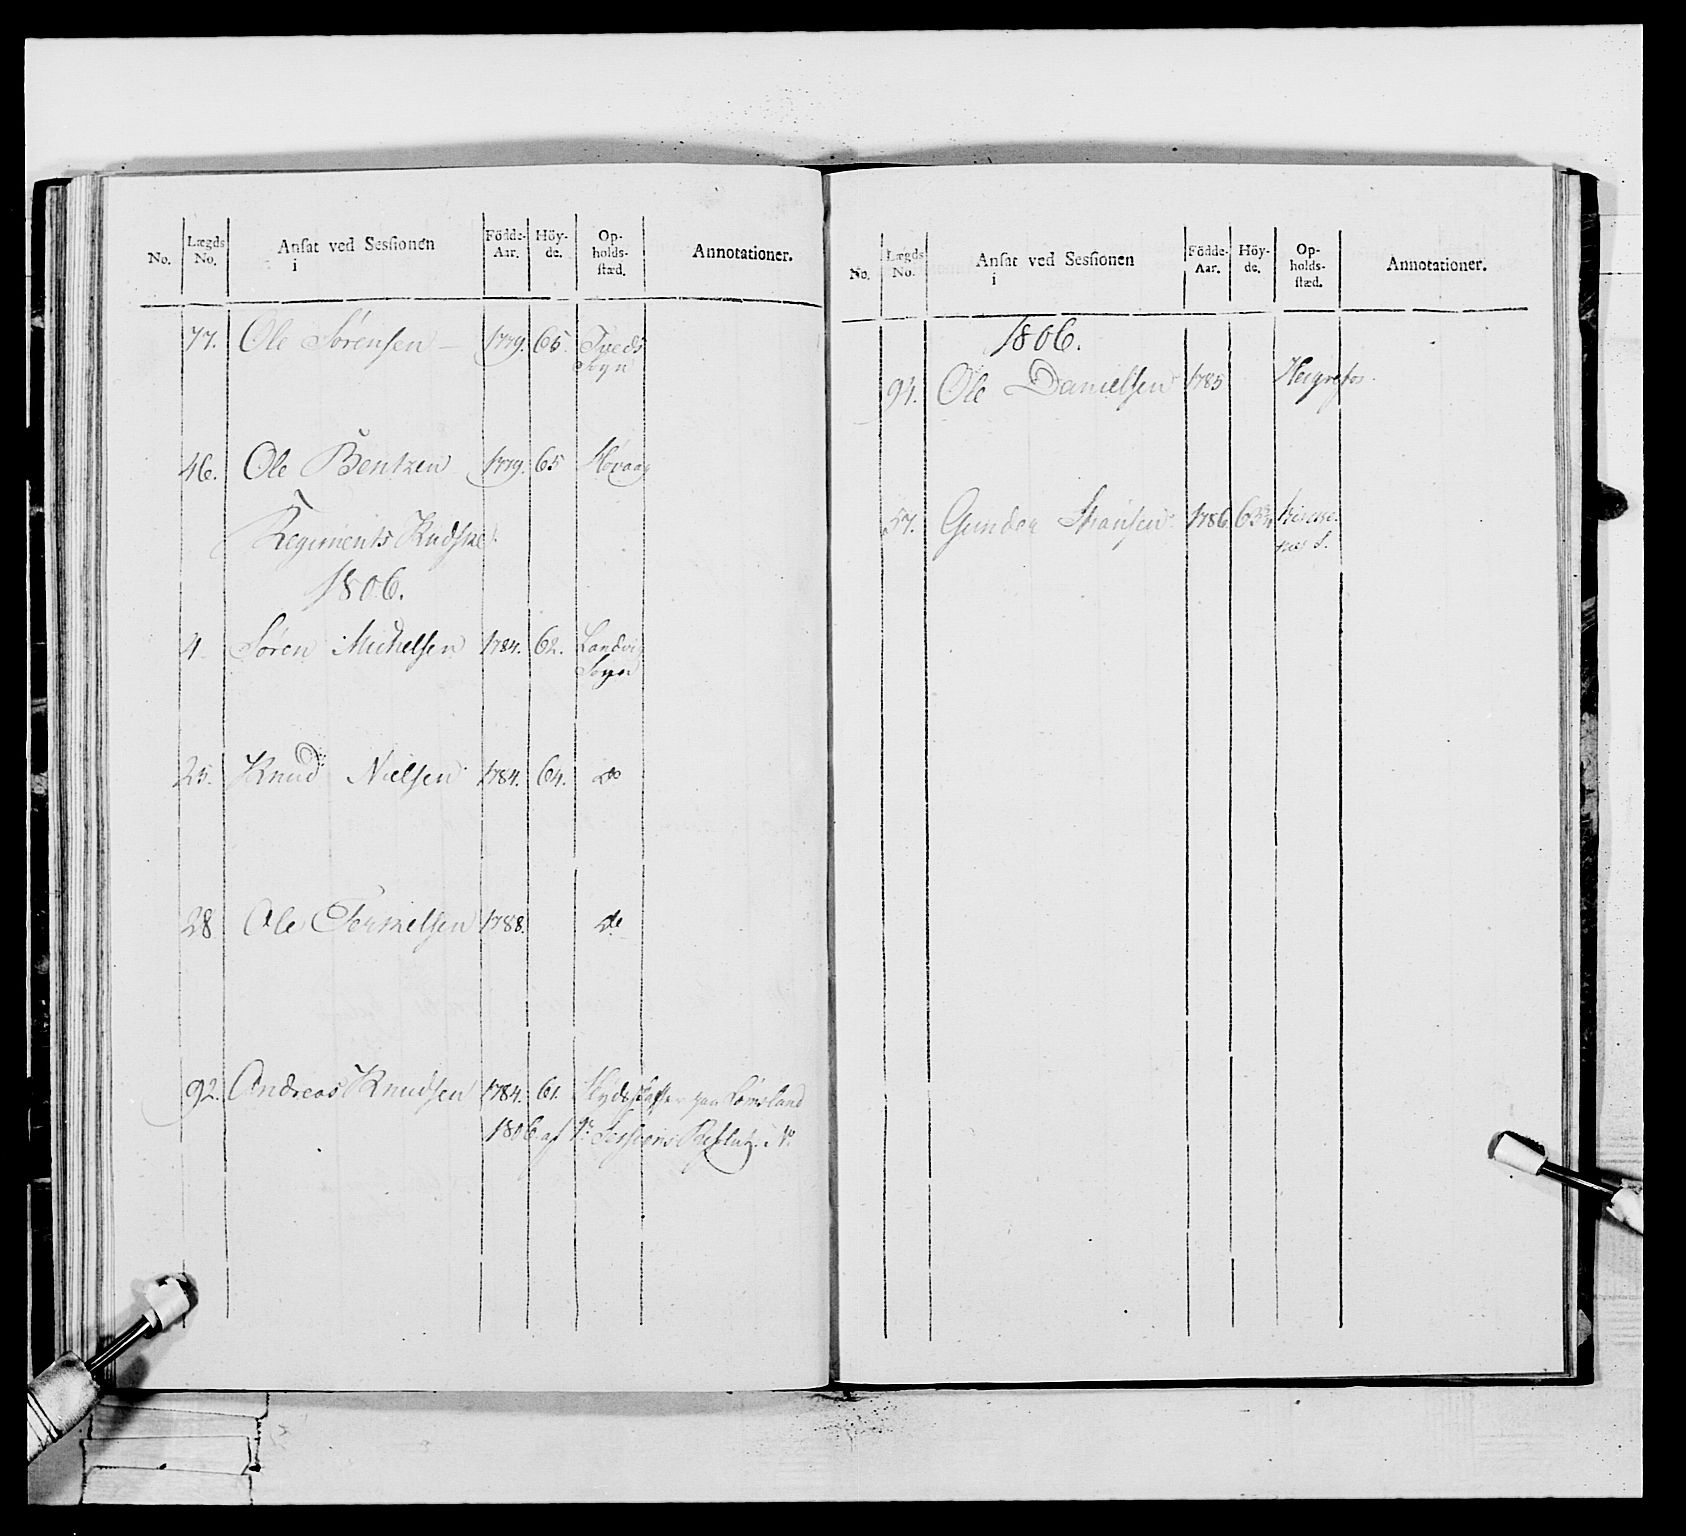 No. Lægds No. Ansat ved Sessionen i Födde-Aar. Höy-de. Op-holds-stæd. Annotationer.
77. Ole Sørensen – 1779. 65. Tveds
Sogn
46. Ole Bentzen 1779. 65 Høvaag
Regiments Kudske
1806.
4 Søren Michelsen 1784. 62. Landvig
Sogn
25. Knud Nielsen 1784. 64. do
28 Ole Terkelsen 1788. do
92. Andreas Knudsen 1784. 61. Skydsskaffer paa Lømsland
1806 af Sessions Beslut. No
No. Lægds No. Ansat ved Sessionen i Födde-Aar. Höy-de. Op-holds-stæd. Annotationer.
1806.
94. Ole Danielsen 1785 Heigrefos
57. Gunder Hansen 1786 63¾